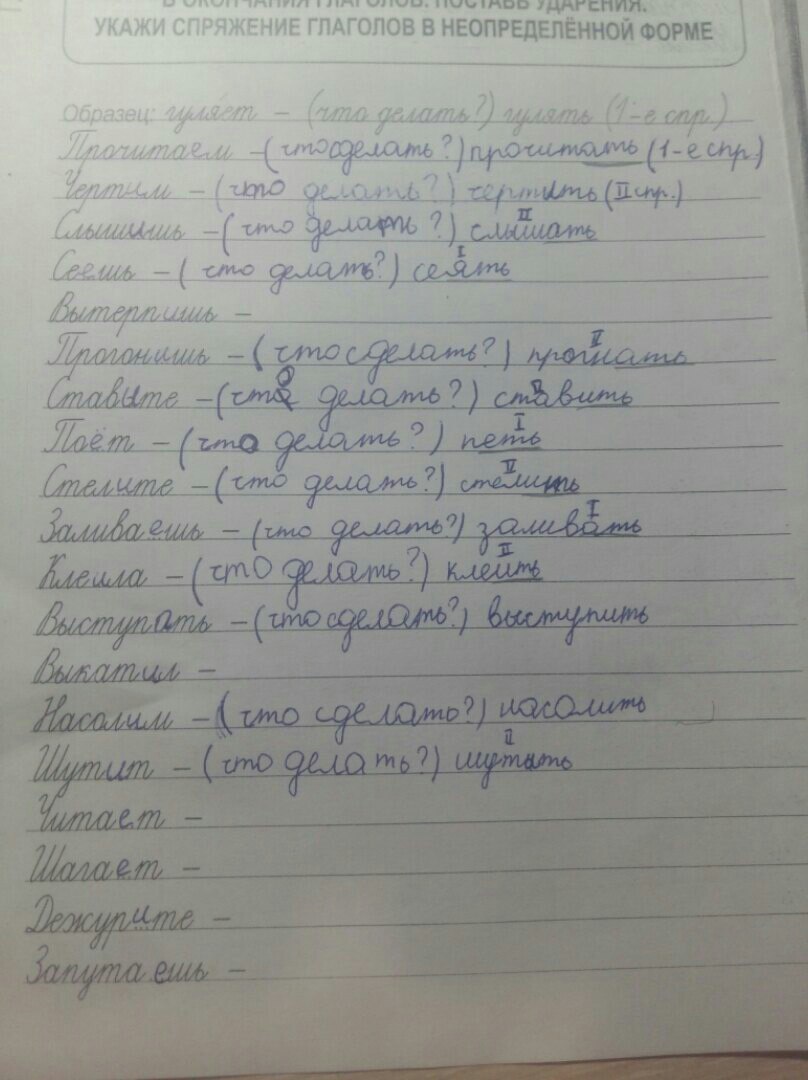 В ОКОНЧАНИЯ ГЛАГОЛОВ. ПОСТАВЬ УДАРЕНИЯ.
УКАЖИ СПРЯЖЕНИЕ ГЛАГОЛОВ В НЕОПРЕДЕЛЁННОЙ ФОРМЕ
Образец: гуля́ет – (что делать?) гулять (1-е спр.)
Прочитаем – (что сделать?) прочитать (1-е спр.)
Чертим – (что делать?) чертить (II спр.)
Слышишь – (что делать?) слышать II
Сеешь – (что делать?) сеять I
Вытерпишь –
Прогонишь – (что сделать?) прогнать II
Ставите – (что делать?) ставить II
Поёт – (что делать?) петь I
Стелите – (что делать?) стелить II
Заливаешь – (что делать?) заливать I
Клеила – (что делать?) клеить II
Выступать – (что сделать?) выступить
Выкатил –
Насолим – (что сделать?) насолить
Шутит – (что делать?) шутить II
Читает –
Шагает –
Дежурите –
Запутаешь –